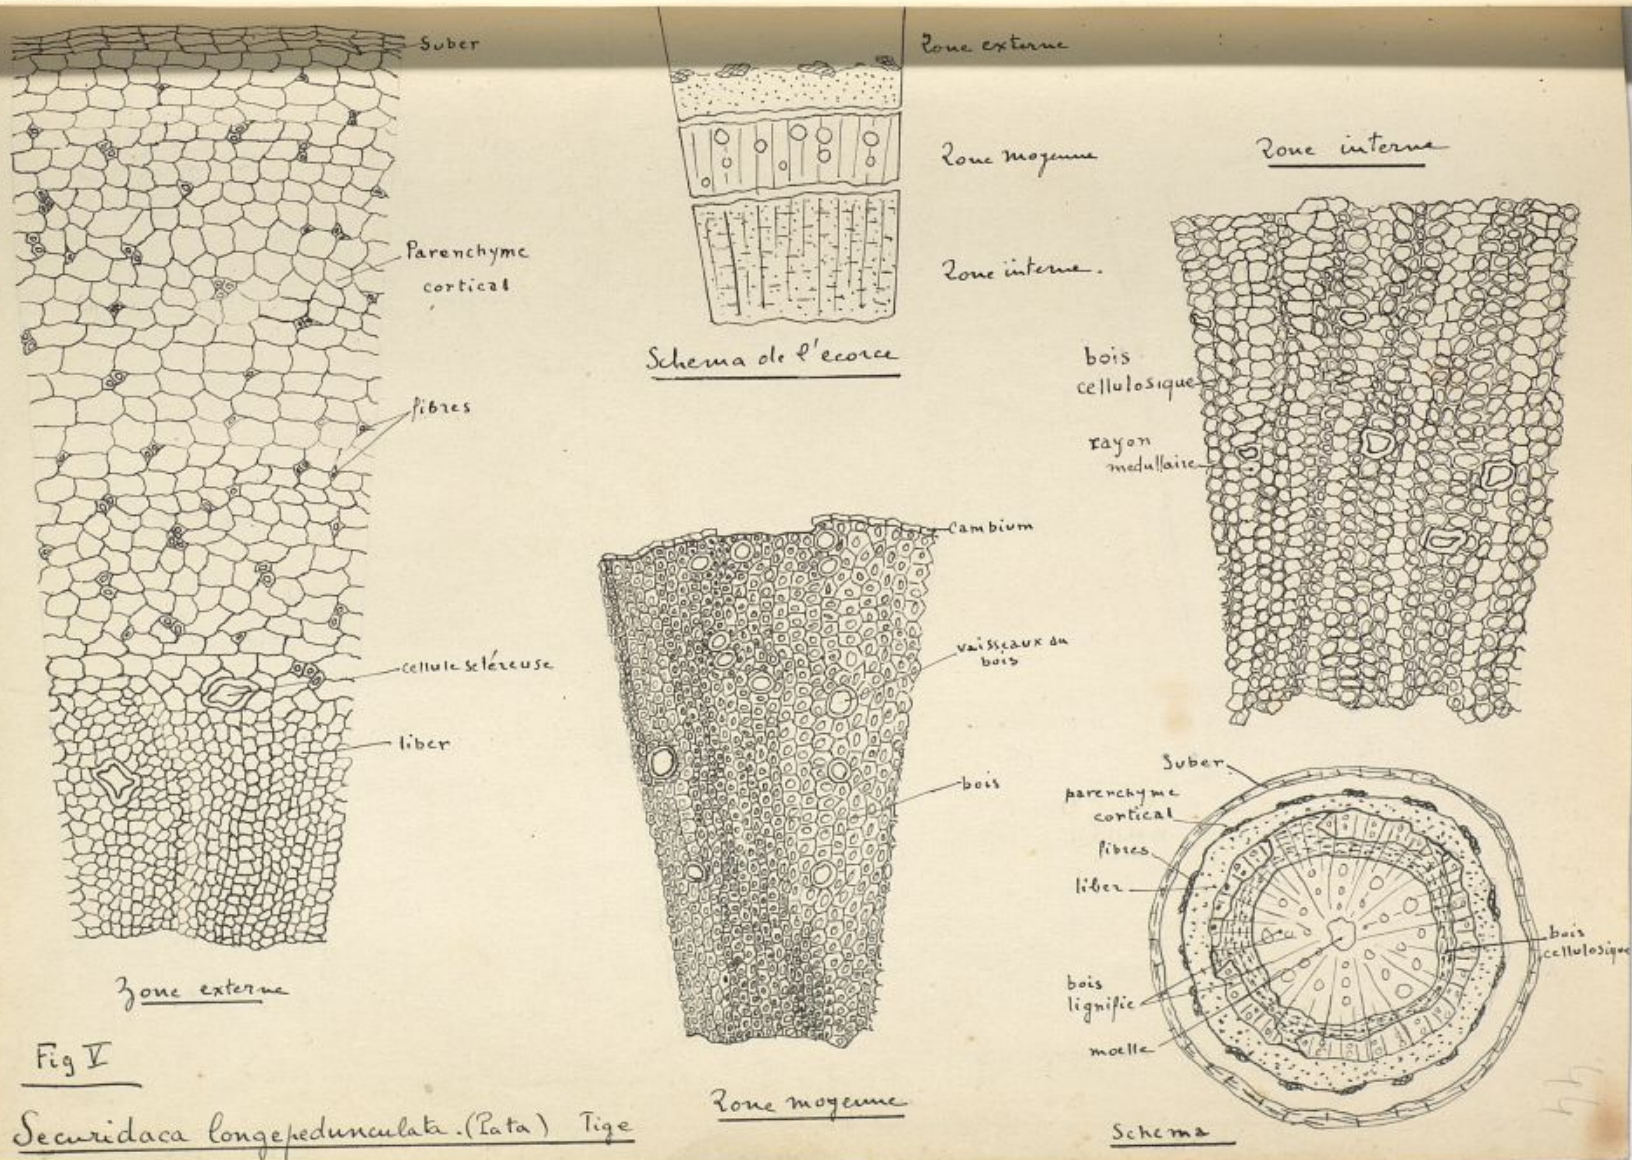 Suber
Parenchyme
cortical
fibres
cellule scléreuse
liber
Zone externe
Fig V
Securidaca longepedunculata. (Pata) Tige
Zone externe
Zone moyenne
Zone interne.
Schema de l'écorce
cambium
vaisseaux du
bois
bois
Zone moyenne
Zone interne
bois
cellulosique
rayon
medullaire
Suber
parenchyme
cortical
fibres
liber
bois
cellulosique
bois
lignifie
moelle
Schema